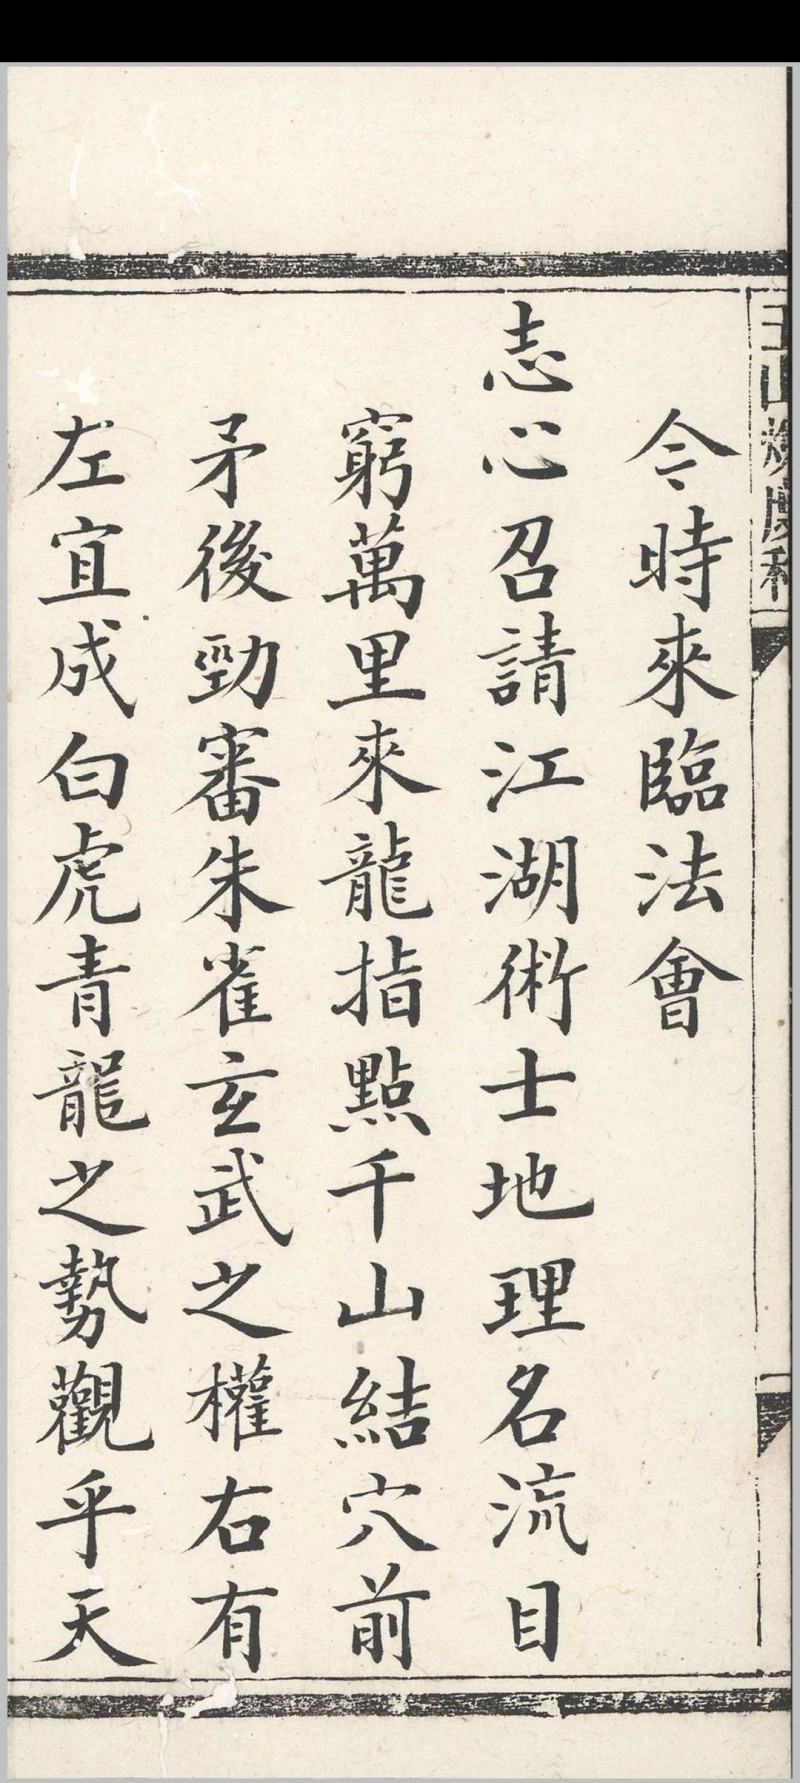 今時來臨法會
志心召請江湖術士地理名流目
窮萬里來龍指點千山結穴前
矛後勁審朱雀玄武之權右有
左宜成白虎青龍之勢觀乎天